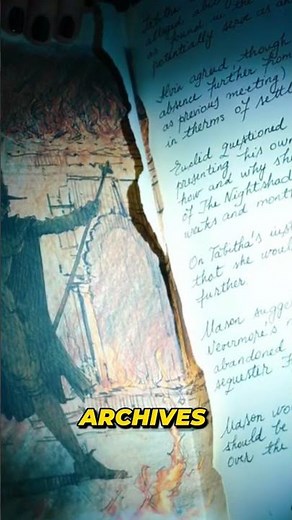 as found in the
potentially serve as an
agreed, though
absence further from
as previous meeting)
in therms of settl
questioned
presenting his own
how and why sh
of The Nightshad
weeks and mont
On Tabitha's
that she woul
further.
Mason sugge
Nevermore's
abandoned
sequester F
Mason wo
should be
over the
ARCHIVES